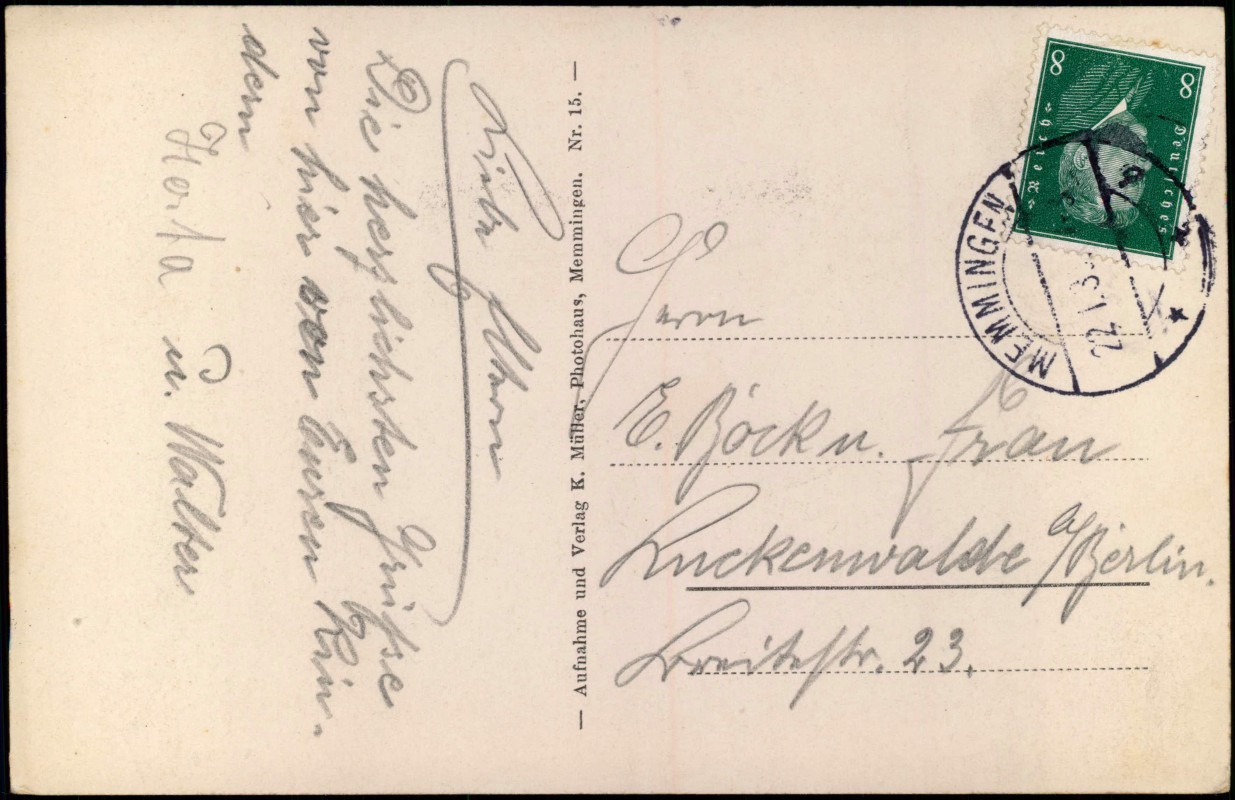 Liebe Eltern
Die herzlichsten Grüsse
von hier von Euren Kin-
dern
Herta u. Walter
— Aufnahme und Verlag K. Müller, Photohaus, Memmingen. Nr. 15. —
8 8
Deutsches
Reich
MEMMINGEN
22.1.3
Herrn
E. Böck u. Frau
Luckenwalde b/Berlin.
Breitestr. 23.